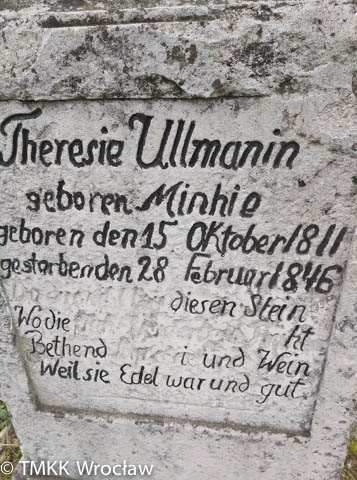 Theresie Ullmanin
geboren Minhio
geboren den 15 Oktober 1811
gestorben den 28 Februar 1846
diesen Stein
Wo die
Bethend und Wein
Weil sie Edel war und gut.
© TMKK Wrocław